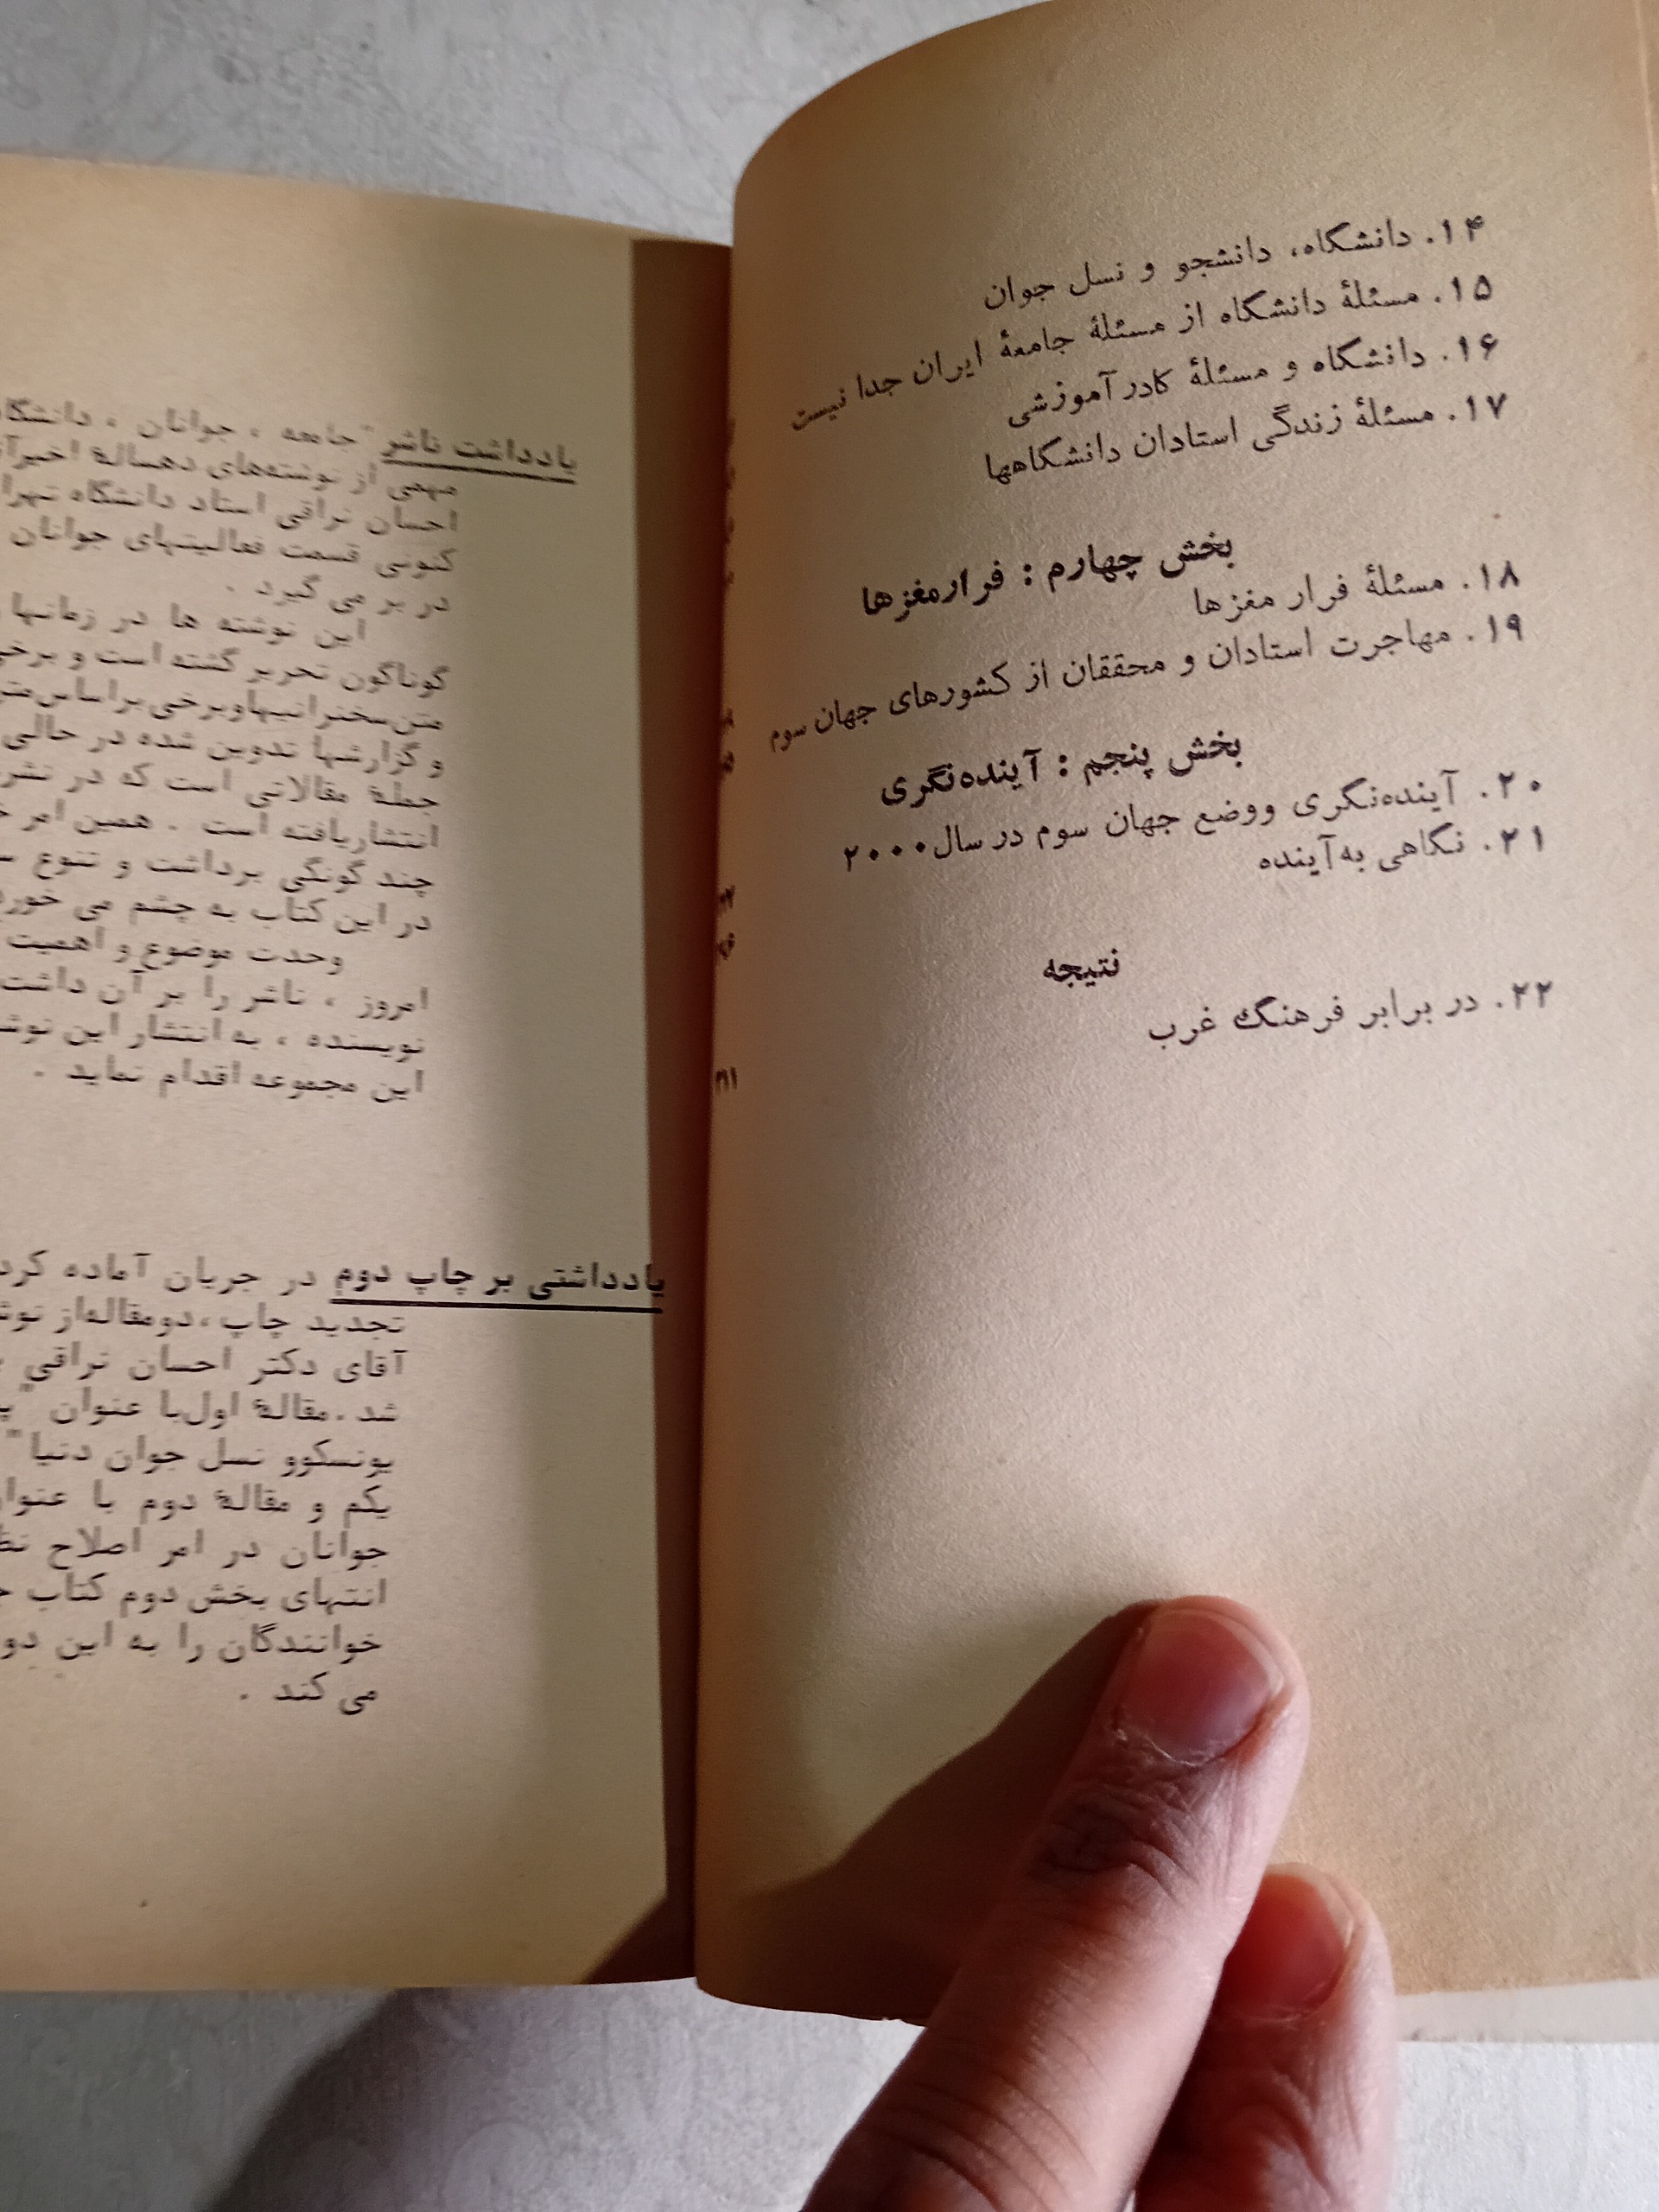 ۱۴. دانشگاه، دانشجو و نسل جوان
۱۵. مسئلهٔ دانشگاه از مسئلهٔ جامعهٔ ایران جدا نیست
۱۶. دانشگاه و مسئلهٔ کادر آموزشی
۱۷. مسئلهٔ زندگی استادان دانشگاهها
بخش چهارم : فرار مغزها
۱۸. مسئلهٔ فرار مغزها
۱۹. مهاجرت استادان و محققان از کشورهای جهان سوم
بخش پنجم : آینده‌نگری
۲۰. آینده‌نگری و وضع جهان سوم در سال ۲۰۰۰
۲۱. نگاهی به آینده
نتیجه
۲۲. در برابر فرهنگ غرب
یادداشت ناشر "جامعه ، جوانان ،
مهمی از نوشته‌های دهسالهٔ
احسان نراقی استاد دانشگاه
کنونی قسمت فعالیتهای جوانان
در بر می گیرد .
این نوشته ها در زمانها
گوناگون تحریر گشته است و
متن سخنرانیها و برخی براساس
و گزارشها تدوین شده در حالی
جملهٔ مقالاتی است که در
انتشار یافته است . همین امر
چند گونگی برداشت و تنوع
در این کتاب به چشم می
وحدت موضوع و اهمیت
امروز ، ناشر را بر آن داشت
نویسنده ، به انتشار این
این مجموعه اقدام نماید .
یادداشتی بر چاپ دوم در جریان آماده
تجدید چاپ ، دومقاله از
آقای دکتر احسان نراقی
شد . مقالهٔ اول با عنوان "
یونسکو و نسل جوان دنیا"
یکم و مقالهٔ دوم با
جوانان در امر اصلاح
انتهای بخش دوم کتاب
خوانندگان را به این دو
می کند .